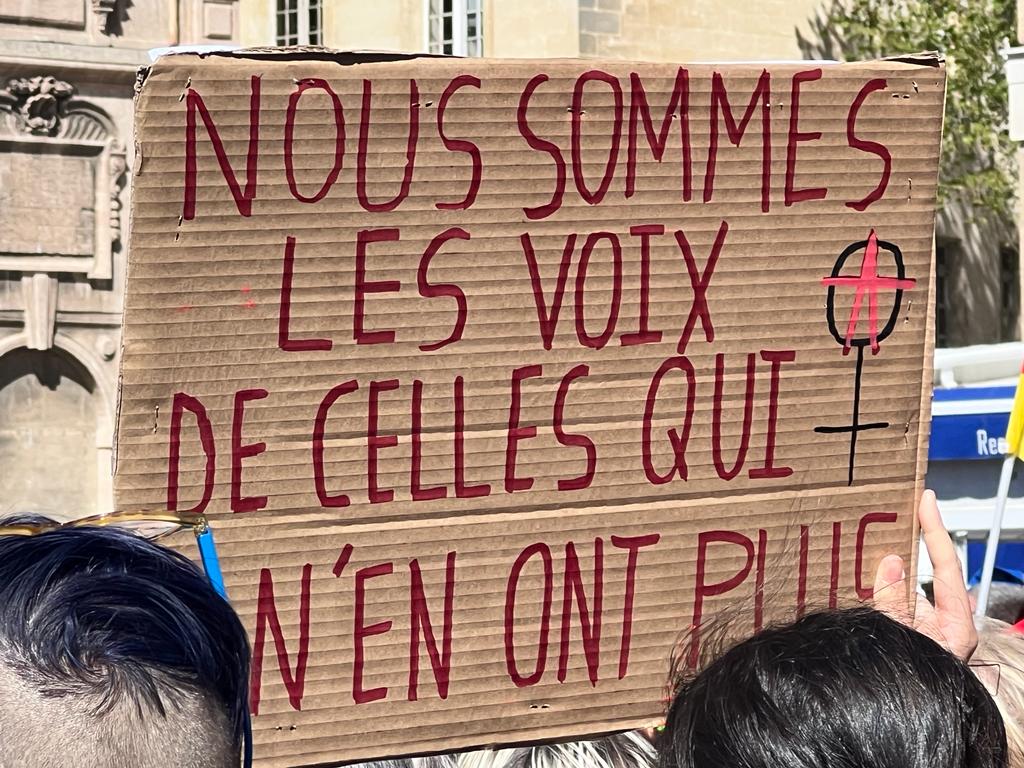 NOUS SOMMES
LES VOIX
DE CELLES QUI
N'EN ONT PLUS